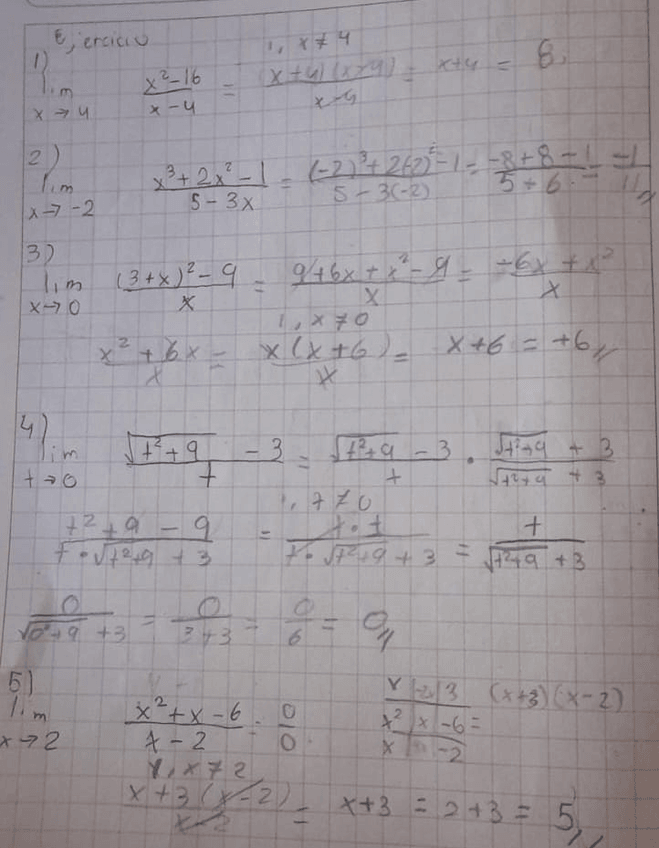 Ejercicio
1) , x≠4
lim x→4 x²-16 / x-4 = (x+4)(x-4) / x-4 = x+4 = 8
2)
lim x→-2 x³+2x²-1 / 5-3x = (-2)³+2(-2)²-1 / 5-3(-2) = -8+8-1 / 5+6 = -1 / 11
3)
lim x→0 (3+x)²-9 / x = 9+6x+x²-9 / x = 6x+x² / x
1, x≠0
x²+6x / x = x(x+6) / x = x+6 = +6
4)
lim t→0 √t²+9 - 3 / t = √t²+9 - 3 / t • √t²+9 + 3 / √t²+9 + 3
, t≠0
t²+9-9 / t•√t²+9 + 3 = t•t / t•√t²+9 + 3 = t / √t²+9 + 3
0 / √0²+9 +3 = 0 / 3+3 = 0 / 6 = 0
5)
lim x→2 x²+x-6 / x-2 = 0 / 0 x 3 (x+3)(x-2)
x² x -6 =
x -2
, x≠2
x+3(x-2) / x-2 = x+3 = 2+3 = 5